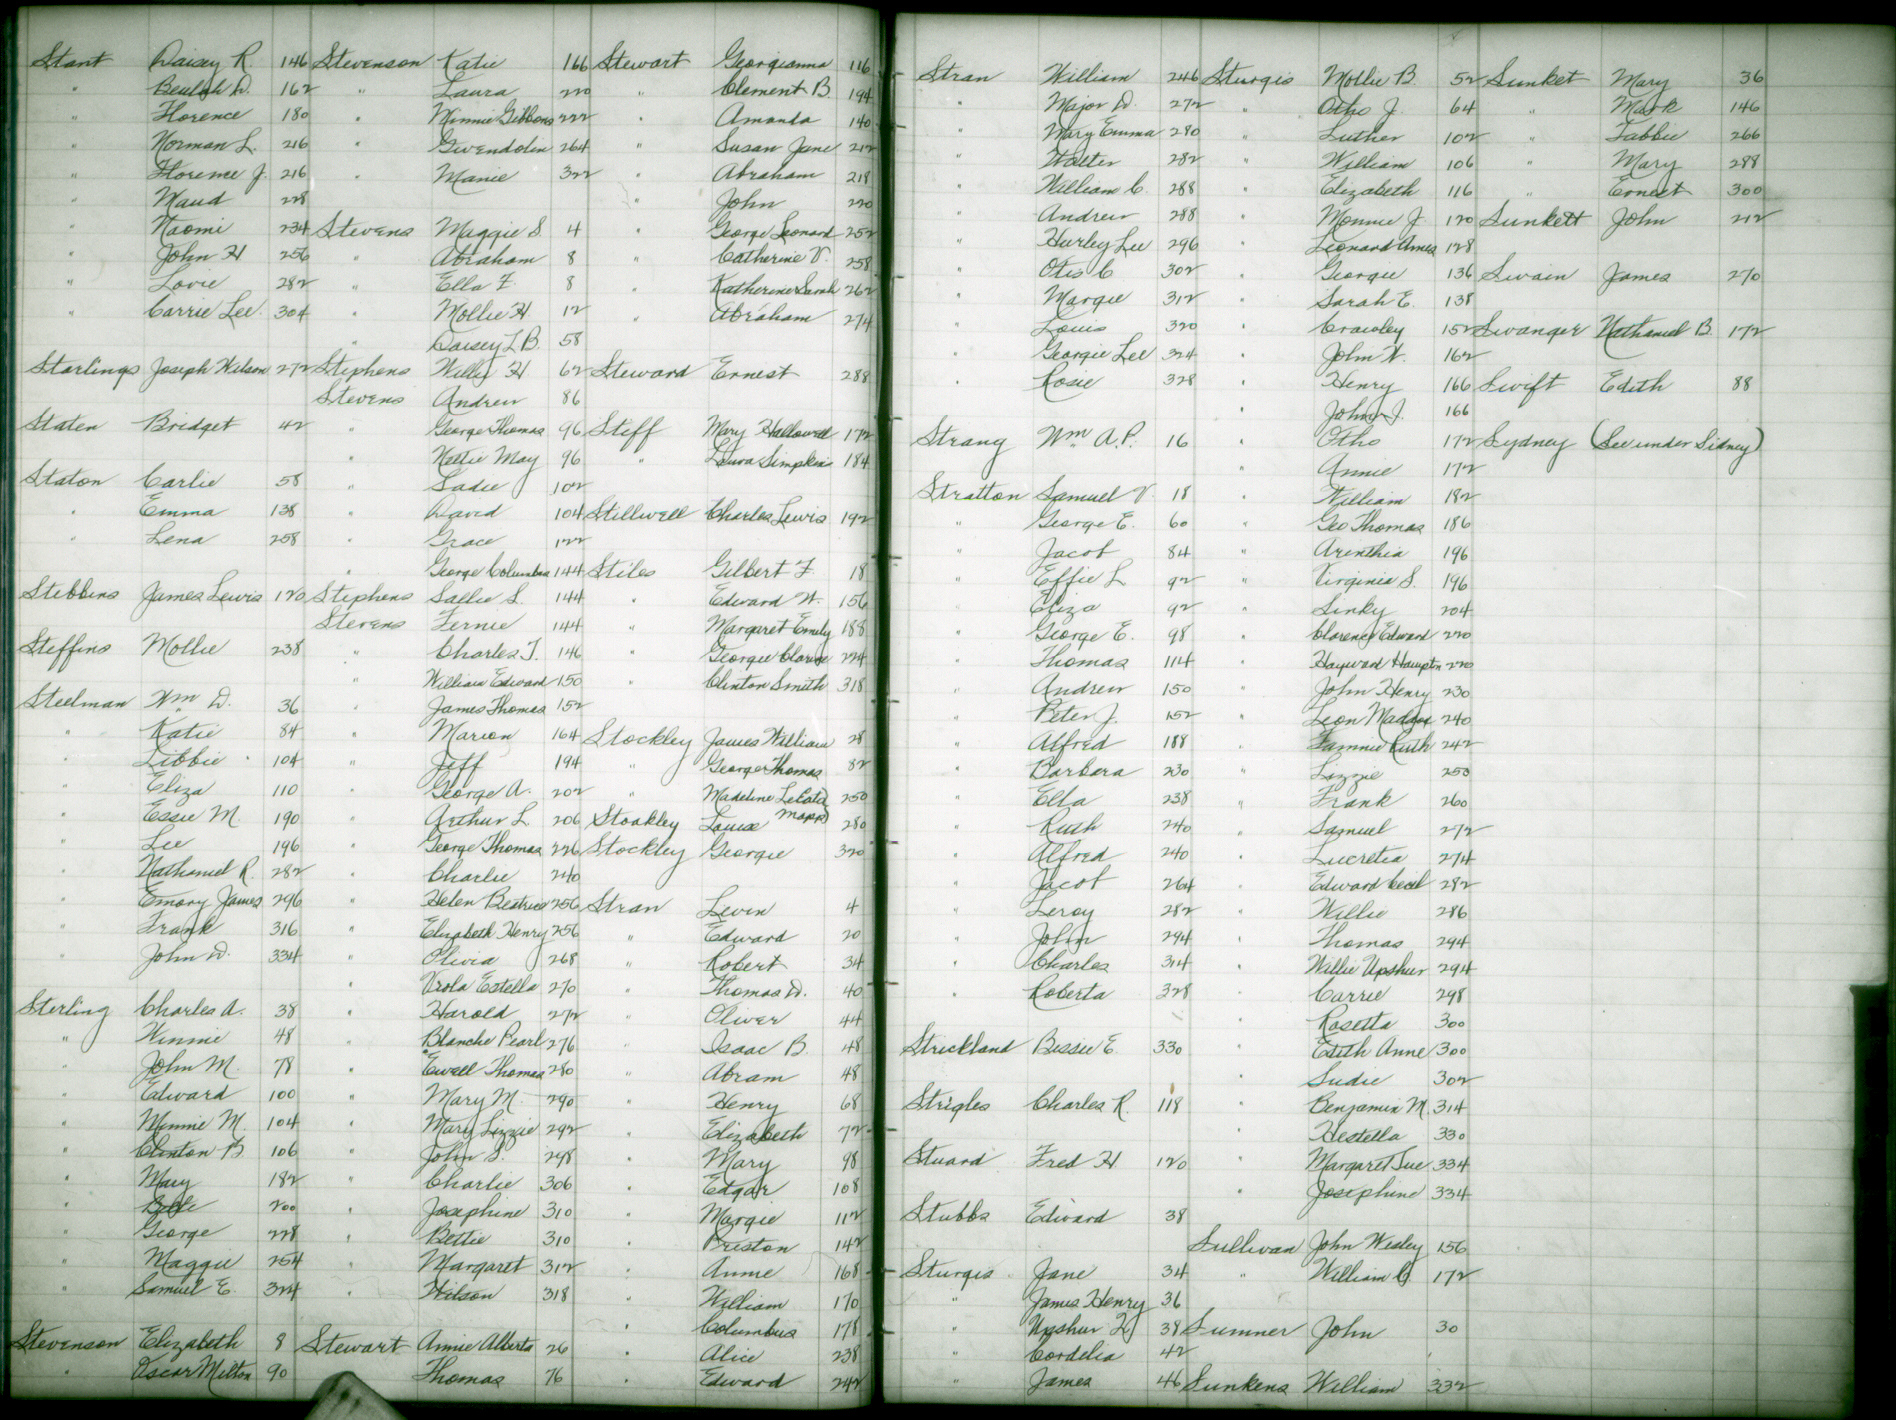 Stant Daisy R. 146
" Beulah D. 162
" Florence 180
" Norman L. 216
" Florence J. 216
" Maud 228
" Naomi 234
" John H 256
" Lovie 282
" Carrie Lee 304
Starlings Joseph Wilson 272
Staten Bridget 42
Staton Carlie 58
" Emma 138
" Lena 258
Stebbins James Lewis 120
Steffins Mollie 238
Steelman Wm D. 36
" Katie 84
" Libbie 104
" Eliza 110
" Essie M. 190
" Lee 196
" Nathaniel R. 282
" Emory James 296
" Frank 316
" John D. 334
Sterling Charles A. 38
" Winnie 48
" John M. 78
" Edward 100
" Minnie M. 104
" Clinton B 106
" Mary 182
" Belle 200
" George 228
" Maggie 254
" Samuel E. 324
Stevenson Elizabeth 8
" Oscar Milton 90
Stevenson Katie 166
" Laura 220
" Minnie Gibbons 222
" Gwendolin 264
" Manie 322
Stevens Maggie S. 4
" Abraham 8
" Ella F. 8
" Mollie H. 12
" Daisey L B. 58
Stephens Willy H 62
Stevens Andrew 86
" George Thomas 96
" Nettie May 96
" Sadie 102
" David 104
" Grace 122
" George Columbus 144
Stephens Sallie S. 144
Stevens Fernie 144
" Charles T. 146
" William Edward 150
" James Thomas 152
" Marion 164
" Jeff 194
" George A. 202
" Arthur L. 206
" George Thomas 226
" Charlie 240
" Helen Beatrice 256
" Elizabeth Henry 256
" Olivia 268
" Viola Estella 270
" Harold 272
" Blanche Pearl 276
" Ewell Thomas 280
" Mary M. 290
" Mary Lizzie 292
" John S. 298
" Charlie 306
" Josephine 310
" Bettie 310
" Margaret 312
" Wilson 318
Stewart Annie Alberta 26
Thomas 76
Stewart Georgianna 116
" Clement B. 194
" Amanda 140
" Susan Jane 212
" Abraham 218
" John 220
" George Leonard 252
" Catherine V. 258
" Katherine Sarah 262
" Abraham 274
Steward Ernest 288
Stiff Mary Hallowell 172
" Laura Simpkins 184
Stillwell Charles Lewis 192
Stiles Gilbert F. 18
" Edward W. 156
" Margaret Emily 188
" Georgie Clarice 224
" Clinton Smith 318
Stockley James William 28
" George Thomas 82
" Madeline LeCato Mapp 250
Stoakley Louise 280
Stockley Georgie 320
Stran Levin 4
" Edward 20
" Robert 34
" Thomas D. 40
" Oliver 44
" Isaac B 48
" Abram 48
" Henry 68
" Elizabeth 72
" Mary 98
" Edgar 108
" Margie 112
" Preston 142
" Annie 168
" William 170
" Columbus 178
" Alice 238
" Edward 242
Stran William 246
" Major D. 272
" Mary Emma 280
" Walter 282
" William C. 288
" Andrew 288
" Hurley Lee 296
" Otis C 302
" Margie 312
" Louis 320
" Georgie Lee 324
" Rosie 328
Strang Wm A.P. 16
Stratton Samuel V. 18
" George E. 60
" Jacob 84
" Effie L 92
" Eliza 92
" George E. 98
" Thomas 114
" Andrew 150
" Peter J. 152
" Alfred 188
" Barbara 230
" Ella 238
" Ruth 240
" Alfred 240
" Jacob 264
" Leroy 282
" John 294
" Charles 314
" Roberta 328
Strickland Bessie E. 330
Strigles Charles R. 118
Stuard Fred H 120
Stubbs Edward 38
Sturgis Jane 34
" James Henry 36
" Upshur 38
" Cordelia 42
" James 46
Sturgis Mollie B. 52
" Otho J. 64
" Luther 102
" William 106
" Elizabeth 116
" Monnie J. 120
" Leonard Ames 128
" Georgie 136
" Sarah E. 138
" Crawley 152
" John W. 162
" Henry 166
" John J. 166
" Otho 172
" Annie 172
" William 182
" Geo Thomas 186
" Arinthia 196
" Virginia S. 196
" Sinky 204
" Clarence Edward 220
" Hayward Hampton 220
" John Henry 230
" Leon 240
" Fannie Ruth 242
" Lizzie 250
" Frank 260
" Samuel 272
" Lucretia 274
" Edward Cecil 282
" Willie 286
" Thomas 294
" Willie Upshur 294
" Carrie 298
" Rosetta 300
" Edith Anne 300
" Sudie 302
" Benjamin M. 314
" Hestella 330
" Margaret Sue 334
" Josephine 334
Sullivan John Wesley 156
" William C. 172
Sumner John 30
Sunkens William 332
Sunket Mary 36
" Mark 146
" Tabbie 266
" Mary 288
" Ernest 300
Sunkett John 212
Swain James 270
Swanger Nathaniel B. 172
Swift Edith 88
Sydney (See under Sidney)